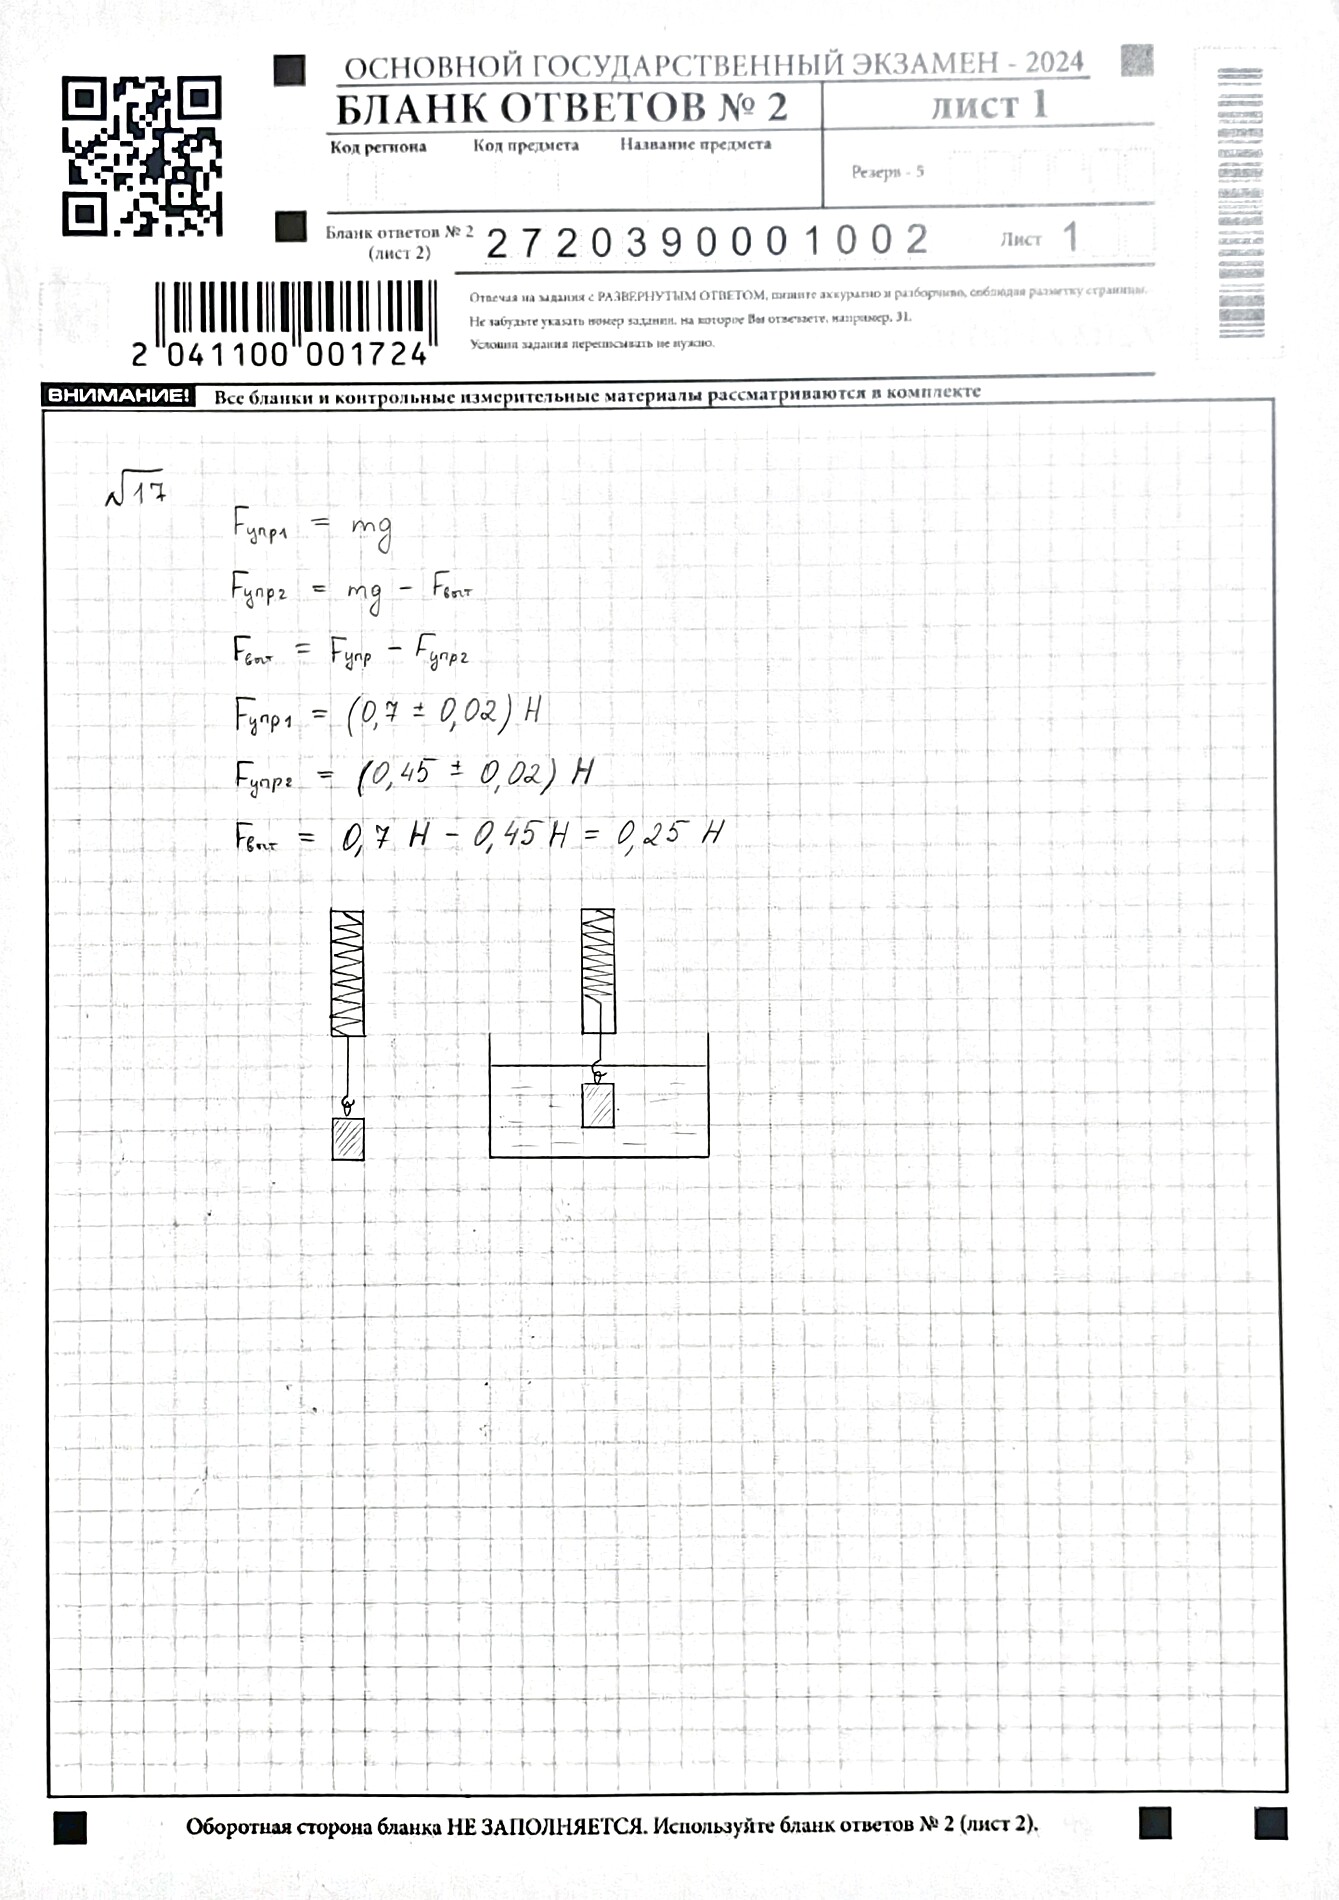 ОСНОВНОЙ ГОСУДАРСТВЕННЫЙ ЭКЗАМЕН - 2024
БЛАНК ОТВЕТОВ № 2 лист 1
Код региона Код предмета Название предмета
Резерв - 5
Бланк ответов № 2 (лист 2) 2720390001002 Лист 1
Отвечая на задания с РАЗВЕРНУТЫМ ОТВЕТОМ, пишите аккуратно и разборчиво, соблюдая разметку страницы.
Не забудьте указать номер задания, на которое Вы отвечаете, например, 31.
Условия задания переписывать не нужно.
2 041100 001724
ВНИМАНИЕ! Все бланки и контрольные измерительные материалы рассматриваются в комплекте
√17
Fупр1 = mg
Fупр2 = mg - Fвыт
Fвыт = Fупр - Fупр2
Fупр1 = (0,7 ± 0,02) Н
Fупр2 = (0,45 ± 0,02) Н
Fвыт = 0,7 Н - 0,45 Н = 0,25 Н
Оборотная сторона бланка НЕ ЗАПОЛНЯЕТСЯ. Используйте бланк ответов № 2 (лист 2).